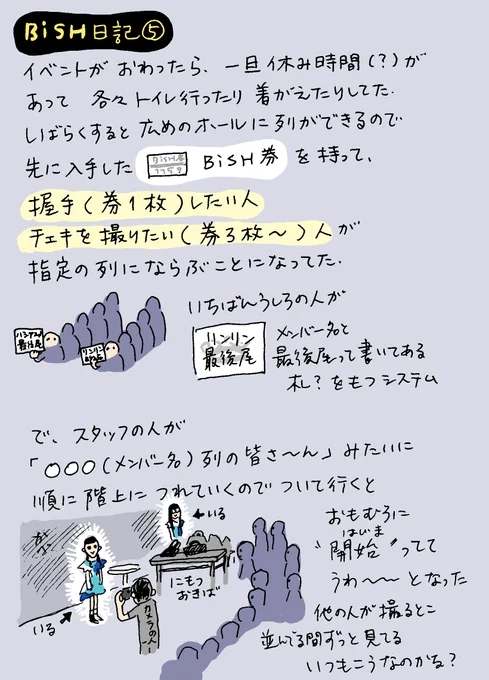 BiSH日記⑤
イベントが おわったら、一旦 休み時間(?)が
あって 各々トイレ行ったり 着がえたりしてた.
しばらくすると 広めのホールに列ができるので
先に入手した BiSH券 を持って、
握手(券1枚)したい人
チェキを撮りたい(券3枚〜)人が
指定の列にならぶことになってた.
いちばんうしろの人が
最後尾
リンリン
リンリン
最後尾
メンバー名と
最後尾って書いてある
札?をもつシステム
で、スタッフの人が
「○○○(メンバー名)列の皆さ〜ん」みたいに
順に階上に つれていくので ついて行くと
かべ
←いる
いる
にもつ
おきば
カメラの人
おもむろに
はじま
"開始"ってて
うわ〜〜 となった
他の人が撮るとこ
並んでる間ずっと見てる
いつもこうなのかな?